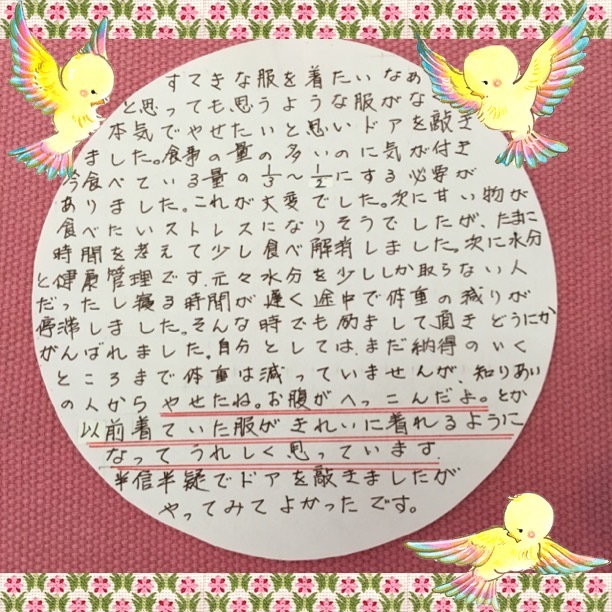 すてきな服を着たいなあ
と思っても思うような服がな
本気でやせたいと思いドアを敲き
ました。食事の量の多いのに気が付き
今食べている量の1/3～1/2にする必要が
ありました。これが大変でした。次に甘い物が
食べたいストレスになりそうでしたが、たまに
時間を考えて少し食べ解消しました。次に水分
と健康管理です.元々水分を少ししか取らない人
だったし寝る時間が遅く途中で体重の減りが
停滞しました。そんな時でも励まして頂きどうにか
がんばれました。自分としては.まだ納得のいく
ところまで体重は減っていませんが、知りあい
の人からやせたね。お腹がへっこんだよ。とか
以前着ていた服がきれいに着れるように
なってうれしく思っています.
半信半疑でドアを敲きましたが
やってみてよかったです。